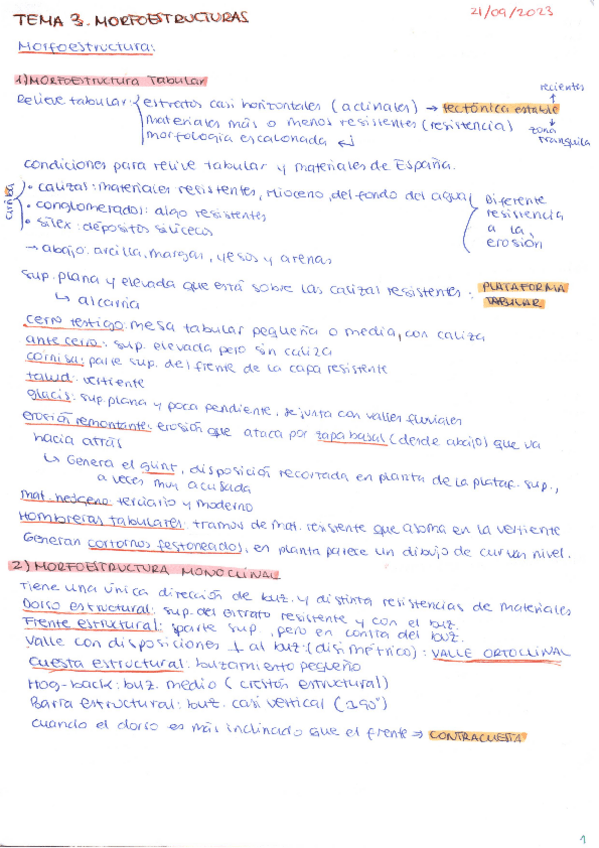 TEMA 3. MORFOESTRUCTURAS
21/09/2023
Morfoestructuras
1) MORFOESTRUCTURA TABULAR
recientes
Relieve tabular: estratos casi horizontales (aclinales) → tectónica estable
materiales más o menos resistentes (resistencia)
zona tranquila
morfología escalonada
condiciones para relive tabular y materiales de España.
cima
• calizas: materiales resistentes, Mioceno, del fondo del agua
• conglomerados: algo resistentes
• sílex: depósitos silíceos
Diferente resistencia a la erosión
→ abajo: arcilla, margas, yesos y arenas
sup. plana y elevada que está sobre las calizas resistentes: PLATAFORMA TABULAR
↳ alcarria
cerro testigo: mesa tabular pequeña o media, con caliza
ante cerro: sup. elevada pero sin caliza
cornisa: parte sup. del frente de la capa resistente
talud: vertiente
glacis: sup. plana y poca pendiente, se junta con valles fluviales
erosión remontante: erosión que ataca por zapa basal (desde abajo) que va
hacia atrás
↳ Genera el , disposición recortada en planta de la plataf. sup.,
a veces muy acusada
mat. : terciario y moderno
Hombreras tabulares: tramos de mat. resistente que asoma en la vertiente
Generan contornos festoneados, en planta parece un dibujo de curvas nivel.
2) MORFOESTRUCTURA MONOCLINAL
Tiene una única dirección de buz. y distinta resistencias de materiales
Dorso estructural: sup. del estrato resistente y con el buz.
Frente estructural: parte sup., pero en contra del buz.
Valle con disposiciones ⊥ al buz. (disimétrico): VALLE ORTOCLINAL
Cuesta estructural: buzamiento pequeño
Hog-back: buz. medio (crestón estructural)
Barra estructural: buz. casi vertical (±90°)
cuando el dorso es más inclinado que el frente → CONTRACUESTA
1